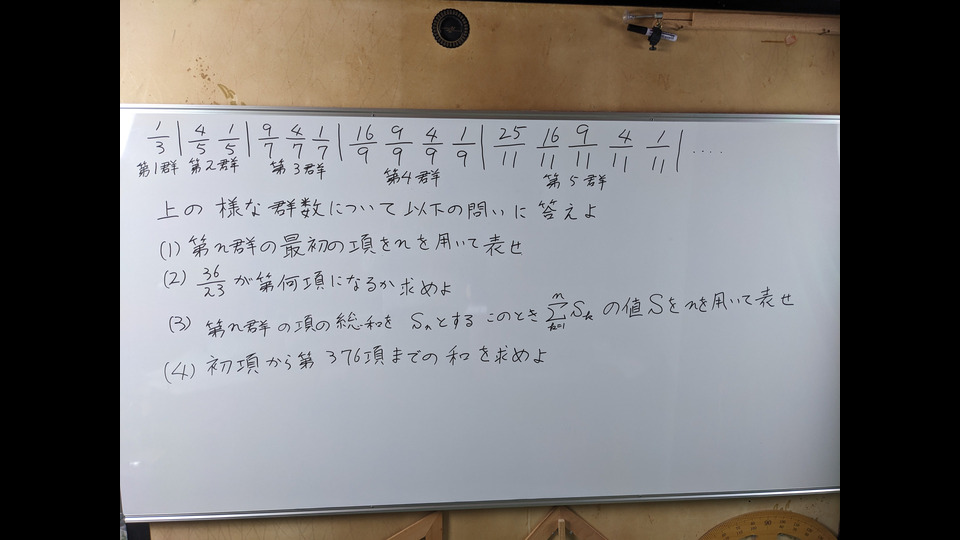 1/3 | 4/5 1/5 | 9/7 4/7 1/7 | 16/9 9/9 4/9 1/9 | 25/11 16/11 9/11 4/11 1/11 | ....
第1群 第2群 第3群 第4群 第5群
上の様な群数について以下の問いに答えよ
(1) 第n群の最初の項をnを用いて表せ
(2) 36/23が第何項になるか求めよ
(3) 第n群の項の総和をSnとする このとき Σ[k=1→n] Skの値Sをnを用いて表せ
(4) 初項から第376項までの和を求めよ